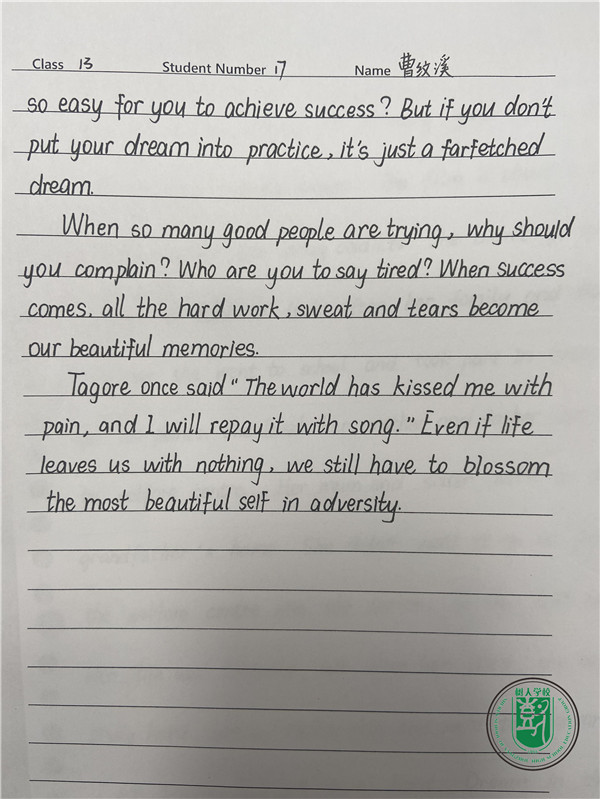 Class 13 Student Number 17 Name 曹纹溪
so easy for you to achieve success? But if you don't
put your dream into practice, it's just a farfetched
dream.
When so many good people are trying, why should
you complain? Who are you to say tired? When success
comes, all the hard work, sweat and tears become
our beautiful memories.
Tagore once said “The world has kissed me with
pain, and I will repay it with song.” Even if life
leaves us with nothing, we still have to blossom
the most beautiful self in adversity.
树人学校